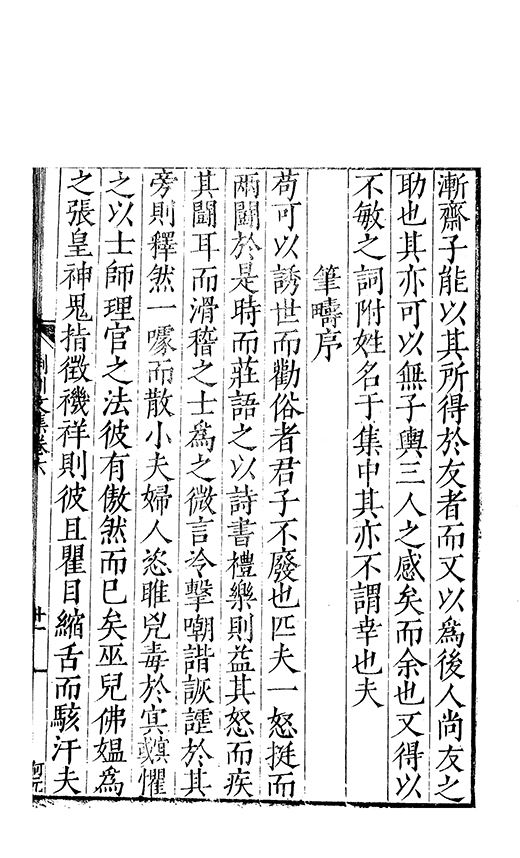 漸齋子能以其所得於友者而又以為後人尚友之
助也其亦可以無子輿三人之感矣而余也又得以
不敏之詞附姓名于集中其亦不謂幸也夫
筆疇序
苟可以誘世而勸俗者君子不廢也匹夫一怒挺而
兩鬭於是時而莊語之以詩書禮樂則益其怒而疾
其鬭耳而滑稽之士爲之微言冷擊嘲諧詼諢於其
旁則釋然一噱而散小夫婦人恣睢兇毒於㝠㝠或懼
之以士師理官之法彼有傲然而巳矣巫兒佛媼爲
之張皇神鬼指徵禨祥則彼且瞿目縮舌而駭汗夫
荆川文集卷六
廿一
何元